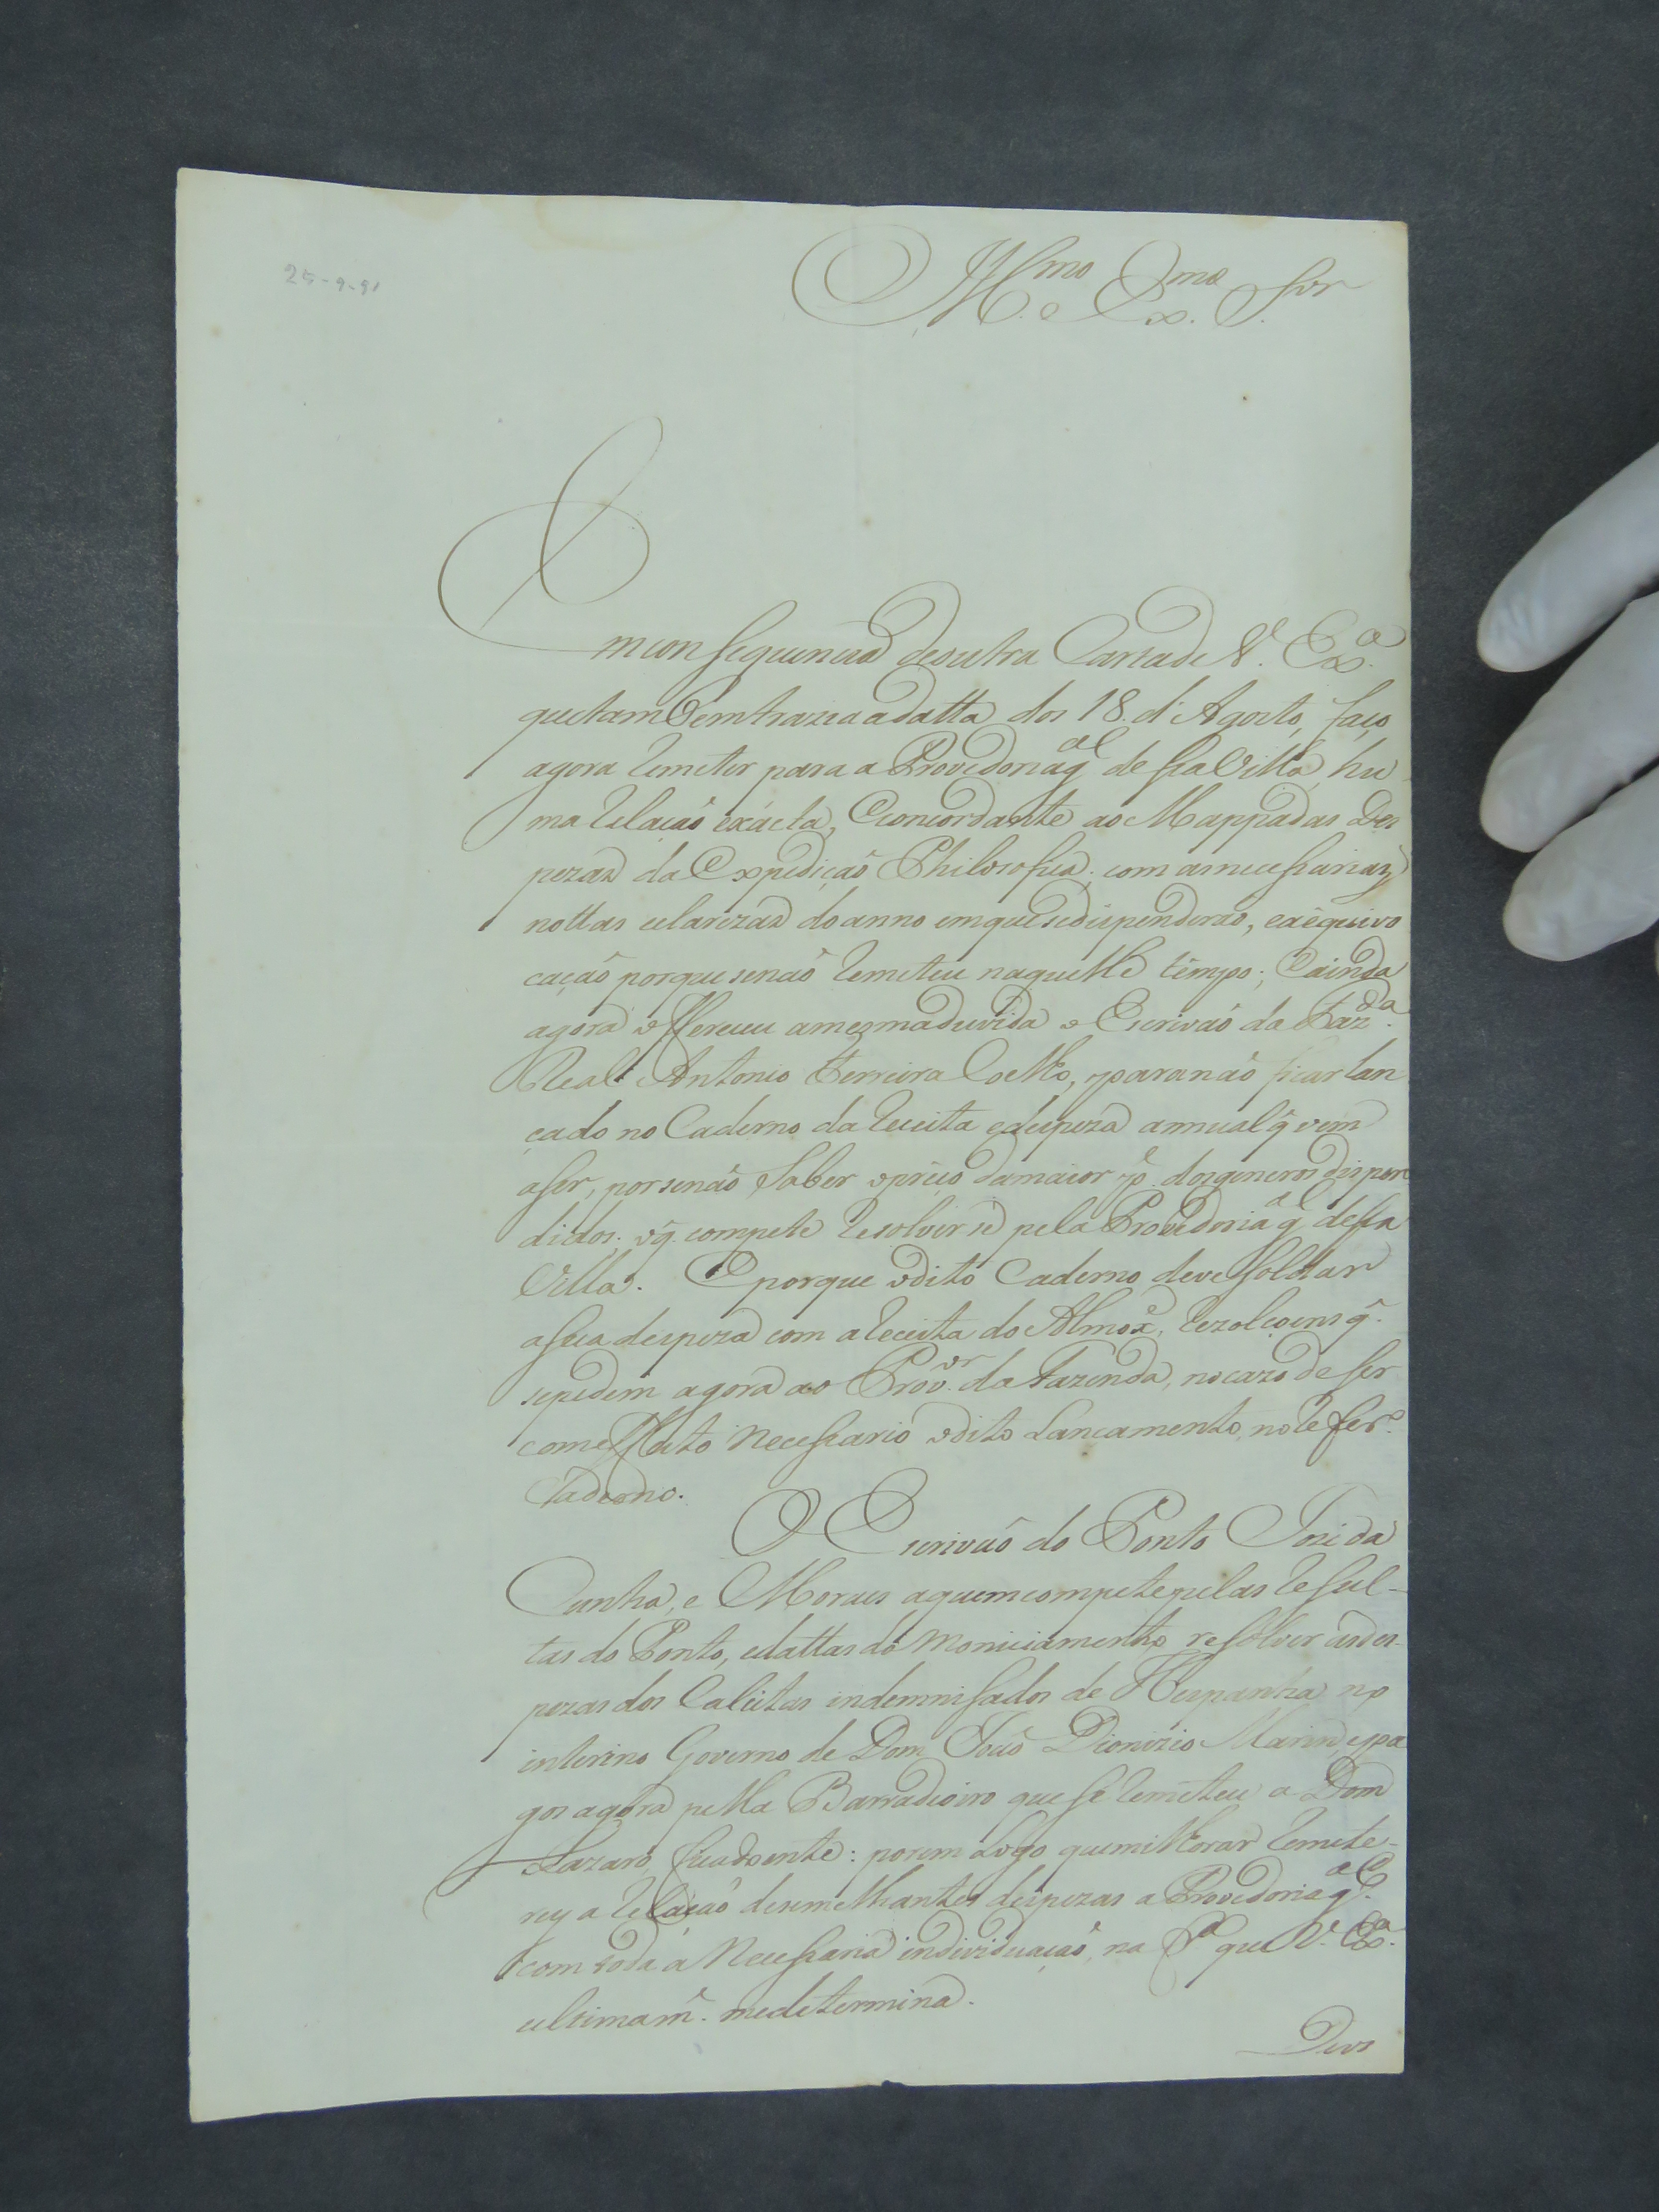 25-9-91
Ill.mo e Ex.mo S.or
Em consequencia de outra Carta de V. Ex.a
que tambem trazia a datta dos 18. d'Agosto, faço
agora remeter para a Provedoria g.al dessa Villa hu-
ma relação exácta, e concordante ao Mappa das Des
pezas da Expedição Philosofica, com as necessarias
nottas e clarezas do anno em que se dispenderão, e a equivo
cação porque se não remeteu naquelle tempo; e ainda
agora offereceu a mesma duvida o Escrivão da Faz.da
Real Antonio Ferreira Coelho, para não ficar lan
çado no Caderno da receita e despeza annual q̃ vem
a ser, por se não saber o preço da maior p.e dos generos dispen
didos. o q̃. compete resolver se pela Provedoria g.al dessa
Villa. E porque o dito Caderno deve soldar
a sua despeza com a receita do Almox.e
se pedem agora ao Prov.or da Fazenda, no cazo de ser
com effeito necessario o dito Lançamento no refer.o
Caderno.
O Escrivão do Ponto Jozé da
Cunha, e Moraes a quem compete pelas resul-
tas do Ponto, e dattas do Municiamento resolver as des-
pezas dos Calcetas indemnisados de Hespanha no
interino Governo de Dom João Dionizio Marin, e pa
gos agora pella Barra de oiro que se remeteu a Dom
Lazaro, fica doente: porem Logo que milhorar remete-
rey a relação de semelhantes despezas a Provedoria g.al
com toda a necessaria individuação, na f.a que V. Ex.a
ultimam.e me determina.
Deos